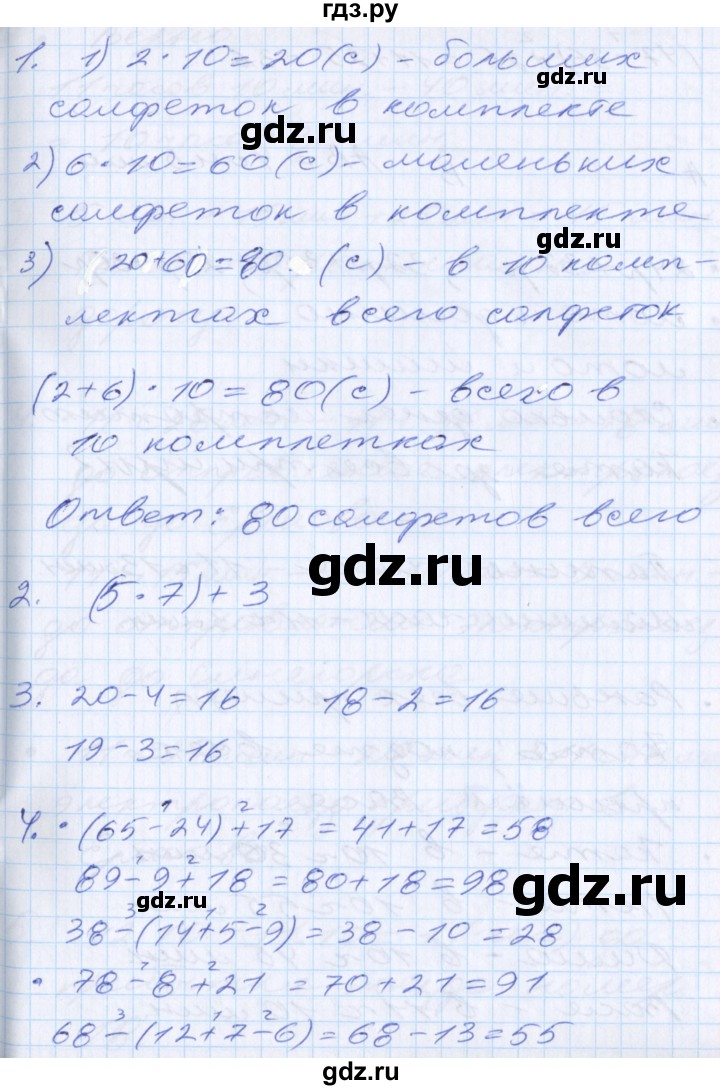 гдз.ру
1. 1) 2 · 10 = 20 (с) – больших
салфеток в комплекте
gdz.ru
2) 6 · 10 = 60 (с) – маленьких
салфеток в комплекте
gdz.ru
3) 20 + 60 = 80. (с) – в 10 комп-
лектах всего салфеток
(2 + 6) · 10 = 80 (с) – всего в
10 комплетках
Ответ: 80 салфетов всего
gdz.ru
2. (5 · 7) + 3
gdz.ru
3. 20 – 4 = 16 18 – 2 = 16
19 – 3 = 16
1 2
4. · (65 – 24) + 17 = 41 + 17 = 58
1 2
89 – 9 + 18 = 80 + 18 = 98
gdz.ru
gdz.ru
3 1 2
38 – (14 + 5 – 9) = 38 – 10 = 28
1 2
· 78 – 8 + 21 = 70 + 21 = 91
3 1 2
68 – (12 + 7 – 6) = 68 – 13 = 55
gdz.ru